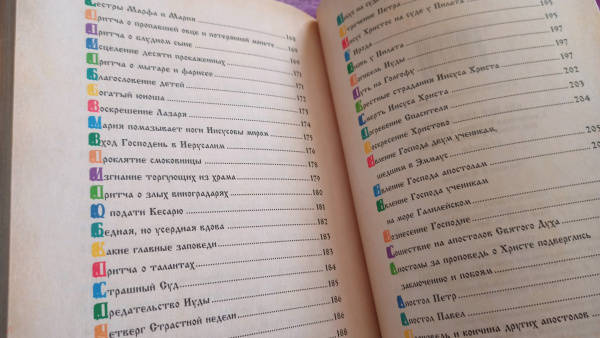 Сестры Марфа и Мария 168
Притча о пропавшей овце и потерянной монете 169
Притча о блудном сыне
Исцеление десяти прокаженных
Притча о мытаре и фарисее 171
Благословение детей 171
Богатый юноша
Воскрешение Лазаря 173
Мария помазывает ноги Иисусовы миром 174
Вход Господень в Иерусалим 175
Проклятие смоковницы 176
Изгнание торгующих из храма 178
Притча о злых виноградарях 179
О подати Кесарю 180
Бедная, но усердная вдова 181
Какие главные заповеди 182
Притча о талантах 183
Страшный Суд 183
Предательство Иуды 184
Четверг Страстной недели 185
186
186
188
Отречение Петра
Иисус Христос на суде у Пилата 195
У Ирода
Вновь у Пилата
Гибель Иуды 197
Путь на Голгофу 197
Крестные страдания Иисуса Христа
Смерть Иисуса Христа 202
Погребение Спасителя 203
Воскресение Христово 204
Явление Господа двум ученикам,
шедшим в Эммаус 205
Явление Господа апостолам
Явление Господа ученикам
на море Галилейском
Вознесение Господне
Сошествие на апостолов Святого Духа
Апостолы за проповедь о Христе подверглись
заключению и побоям
Апостол Петр
Апостол Павел
Проповедь и кончина других апостолов